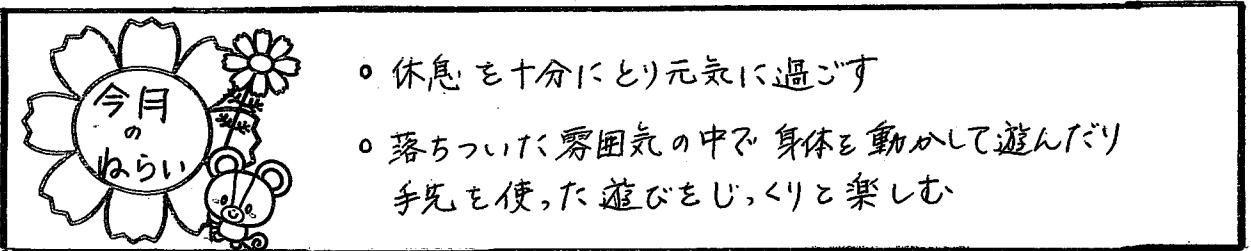 今月
の
ねらい
。休息を十分にとり元気に過ごす
。落ちついた雰囲気の中で身体を動かして遊んだり
手先を使った遊びをじっくりと楽しむ